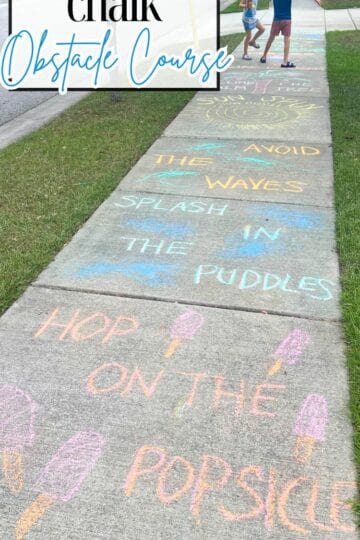 chalk
Obstacle Course
SUN
AVOID
THE
WAVES
SPLASH
IN
THE
PUDDLES
HOP
ON THE
POPSICLE